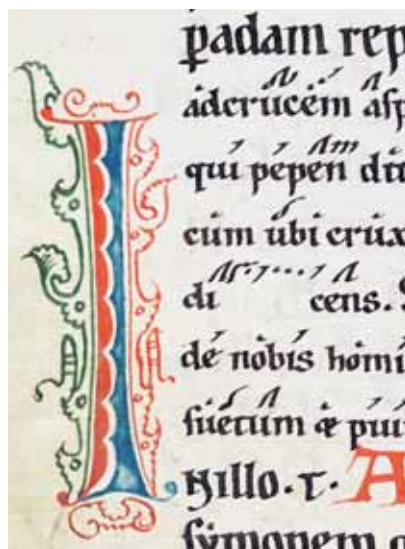 I
padam rep
ad crucem asp
qui pependit
cum ubi crux
di cens. S
de nobis homi
suetum
nillo. t. A
symonem